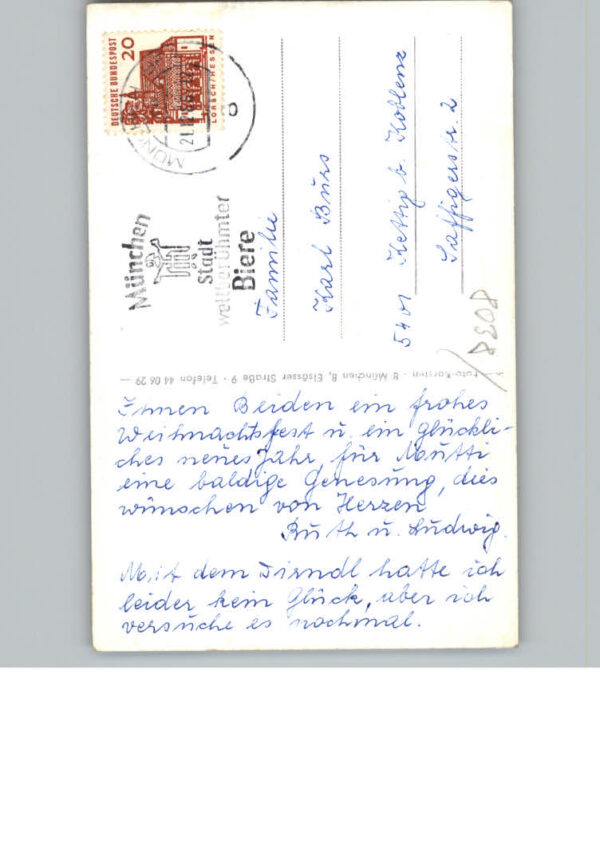 DEUTSCHE BUNDESPOST
20
LORSCH/HESSEN
MÜNCHEN
München
Stadt
weltberühmter
Biere
Familie
Karl Burs
5401 Kettig b. Koblenz
Saffigerstr. 2
8038/
Foto-Karsten - 8 München 8, Elsässer Straße 9 - Telefon 44 06 29
Ihnen Beiden ein frohes
Weihnachtsfest u. ein glückli-
ches neues Jahr, für Mutti
eine baldige Genesung, dies
wünschen von Herzen
Ruth u. Ludwig.
Mit dem Dirndl hatte ich
leider kein Glück, aber ich
versuche es nochmal.